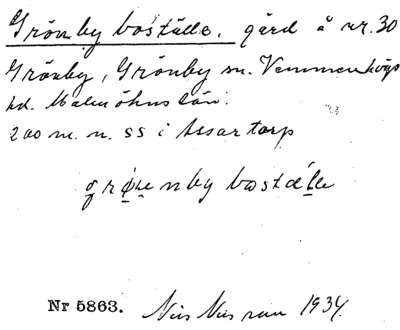 Grönby boställe, gård å nr. 30
Grönby, Grönby sn. Vemmenhögs
hd. Malmöhus län.
200 m. n. SS i Assartorp
grönby boställe
Nr 5863. Nils Nilsson 1934.